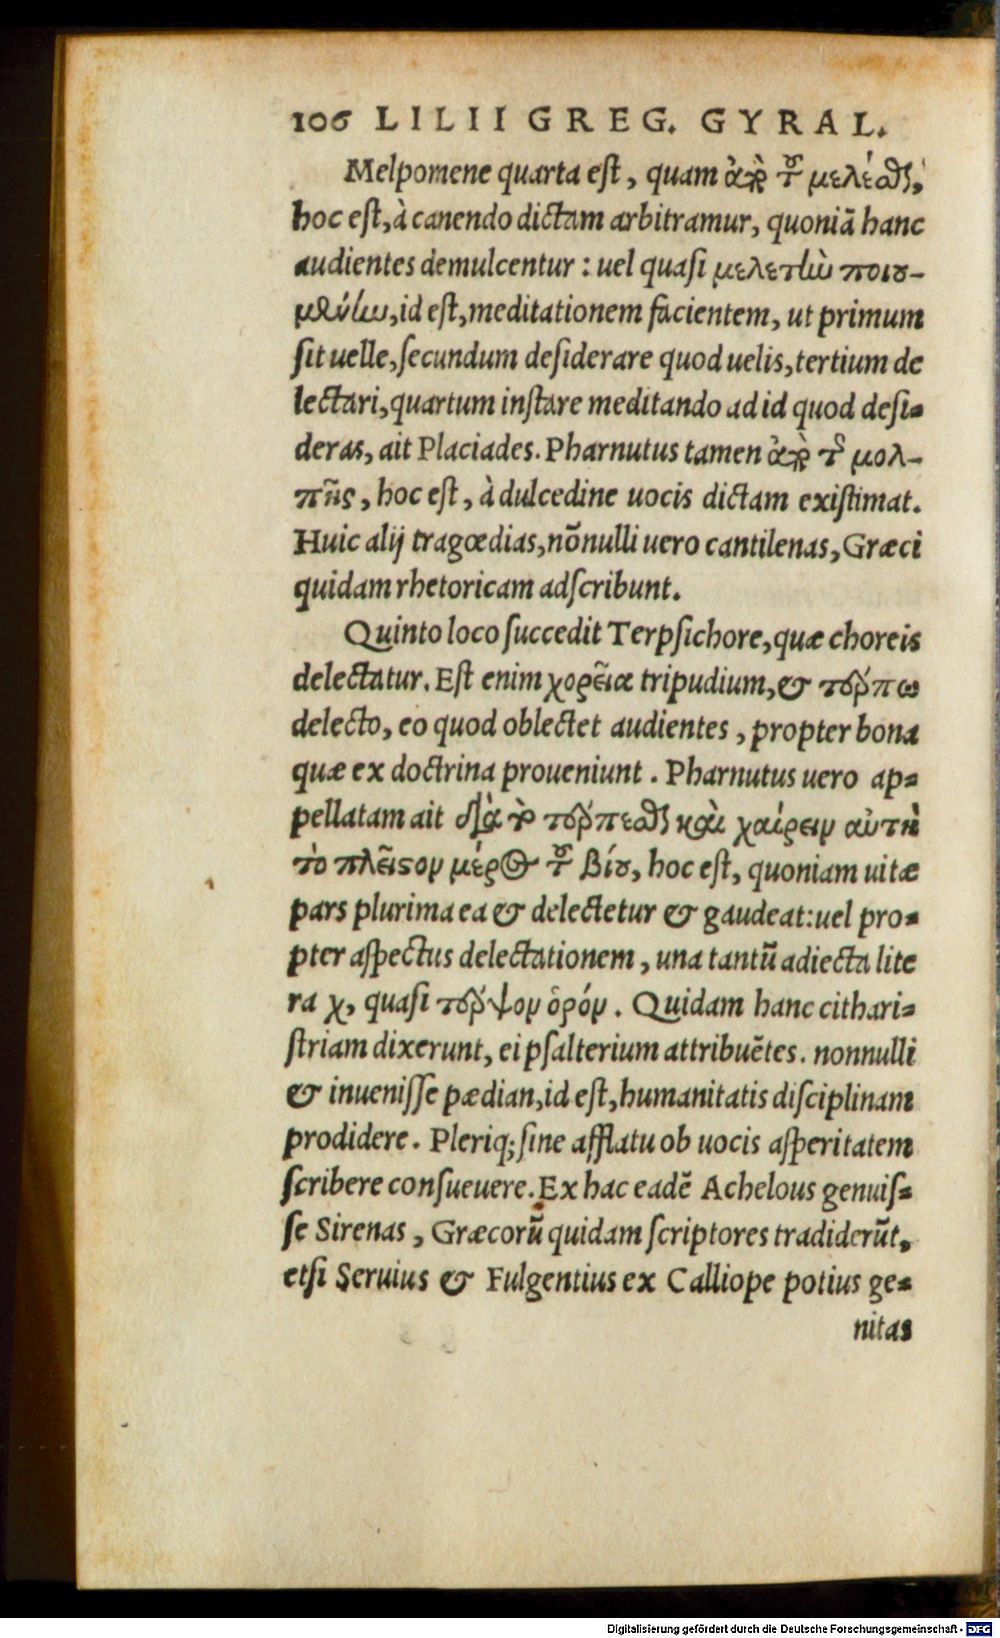 106 LILII GREG. GYRAL.
Melpomene quarta eſt, quam ἀπὸ τοῦ μελεᾶσθαι,
hoc eſt, à canendo dictam arbitramur, quoniã hanc
audientes demulcentur: uel quaſi μελετὼ ποιου-
μένην, id eſt, meditationem facientem, ut primum
ſit uelle, ſecundum deſiderare quod uelis, tertium de
lectari, quartum inſtare meditando ad id quod deſi-
deras, ait Placiades. Pharnutus tamen ἀπὸ τῆς μολ-
πῆς, hoc eſt, à dulcedine uocis dictam exiſtimat.
Huic alij tragœdias, nõnulli uero cantilenas, Græci
quidam rhetoricam adſcribunt.
Quinto loco ſuccedit Terpſichore, quæ choreis
delectatur. Eſt enim χορεῖα tripudium, & τέρπω
delecto, eo quod oblectet audientes, propter bona
quæ ex doctrina proueniunt. Pharnutus uero ap-
pellatam ait διὰ τὸ τέρπεσθαι καὶ χαίρειν αὐτῇ
τὸ πλεῖστον μέρος τοῦ βίου, hoc eſt, quoniam uitæ
pars plurima ea & delectetur & gaudeat: uel pro-
pter aſpectus delectationem, una tantũ adiecta lite
ra χ, quaſi τέρψον ὁρόν. Quidam hanc cithari-
ſtriam dixerunt, ei pſalterium attribuẽtes. nonnulli
& inueniſſe pædian, id eſt, humanitatis diſciplinam
prodidere. Pleriq; ſine afflatu ob uocis aſperitatem
ſcribere conſueuere. Ex hac eadẽ Achelous genuiſ-
ſe Sirenas, Græcorũ quidam ſcriptores tradiderũt,
etſi Seruius & Fulgentius ex Calliope potius ge-
nitas
Digitalisierung gefördert durch die Deutsche Forschungsgemeinschaft - DFG